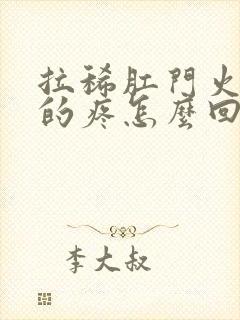 拉稀肛門火
的疼怎麼回
李大叔